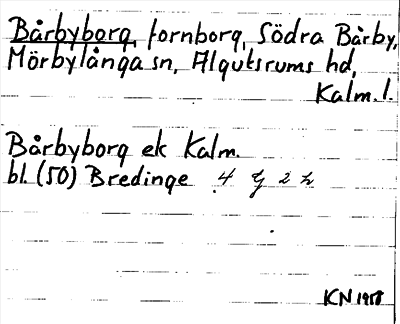 Bårbyborg, fornborg, Södra Bårby,
Mörbylånga sn, Algutsrums hd,
Kalm. l.
Bårbyborg ek Kalm.
bl. (50) Bredinge 4 g 2 h
KN 1958